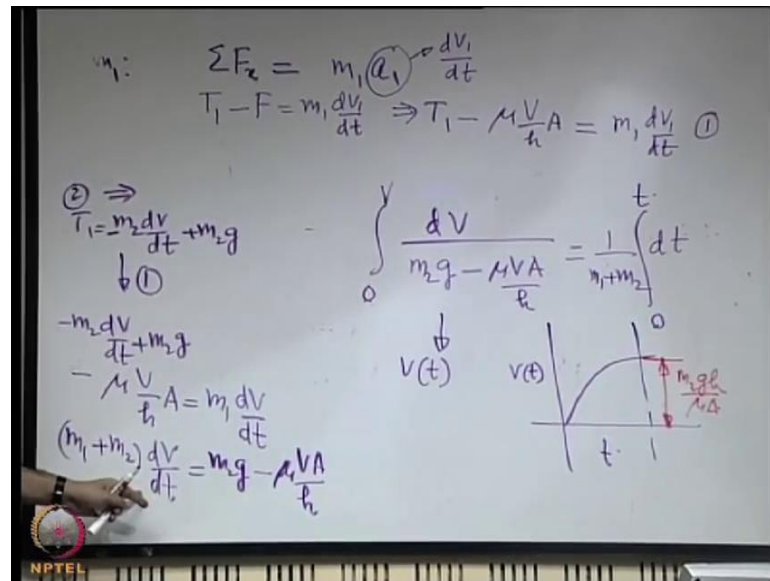 m₁: ΣFₓ = m₁ a₁ → dV₁/dt
T₁ - F = m₁ dV₁/dt ⇒ T₁ - μ V/h A = m₁ dV₁/dt ①
② ⇒
T₁ = -m₂ dV/dt + m₂g
↓ ①
-m₂ dV/dt + m₂g
- μ V/h A = m₁ dV/dt
(m₁+m₂) dV/dt = m₂g - μ VA/h
∫₀ⱽ dV / (m₂g - μVA/h) = 1/(m₁+m₂) ∫₀ᵗ dt
↓
V(t)
V(t)
t
m₂gh/μA
NPTEL